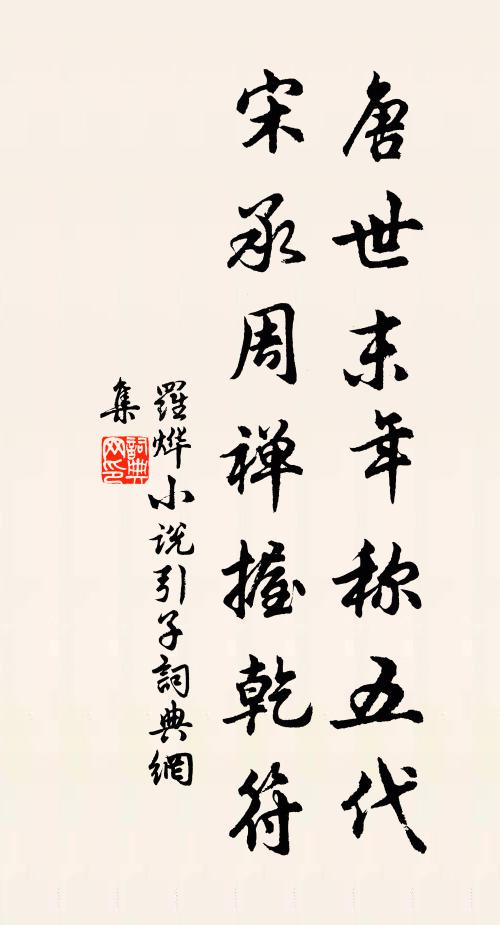 唐世末年称五代
宋承周禅握乾符
羅烨小说引子詞典網
集
詞典
网印